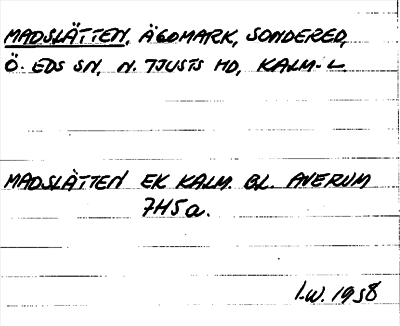 MADSLÄTTEN, ÄGOMARK, SONDERED,
Ö. EDS SN, N. TJUSTS HD, KALM. L
MADSLÄTTEN EK KALM. BL. ANERUM
7H5a.
I.W. 1958